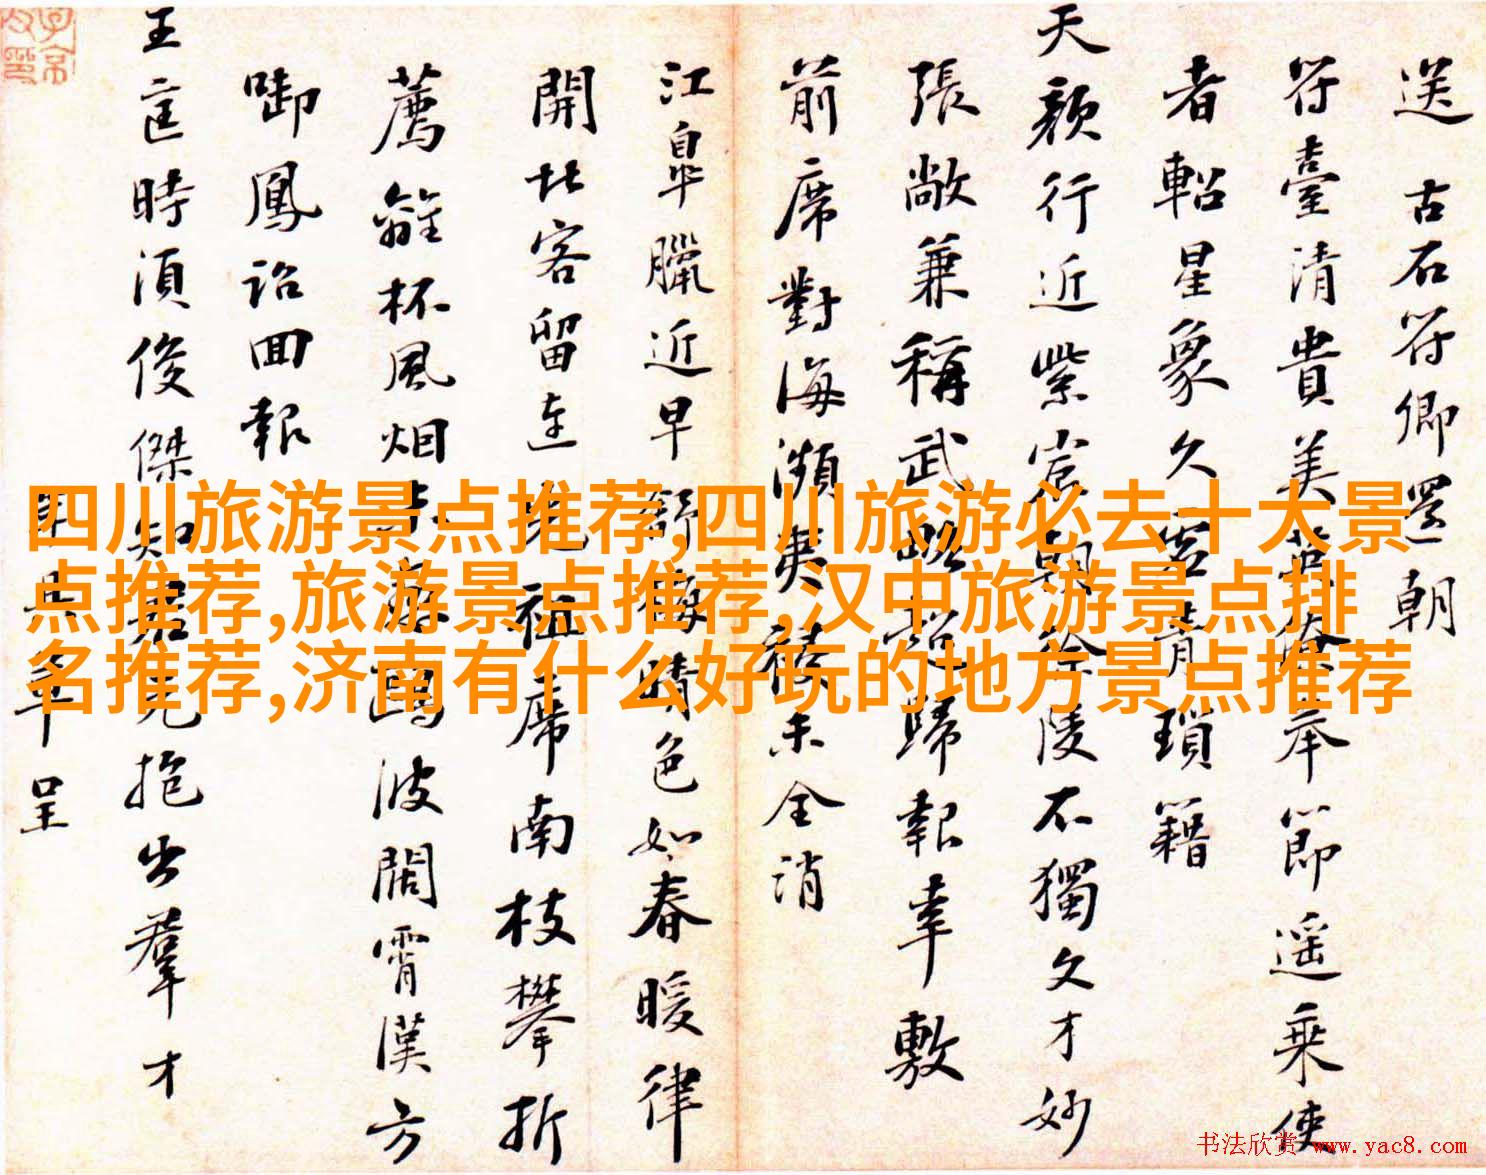 送古石符卿還朝
符臺清貴美
奉節遥乘使
者軺星象久
青瑣籍
天顏行近紫宸朝
陵不獨文才妙
張敞兼稱武
歸報幸敷
前席對海瀕夷
未全消
江皐臘近早
晴色如春暖律
開北客留連
席南枝攀折
薦
杯風烟
波闊霄漢方
啣鳳詔回報
王
時須俊傑知君
抱出羣才
年呈
四川旅游景点推荐,四川旅游必去十大景
点推荐,旅游景点推荐,汉中旅游景点排
名推荐,济南有什么好玩的地方景点推荐
书法欣赏 www.yac8.com